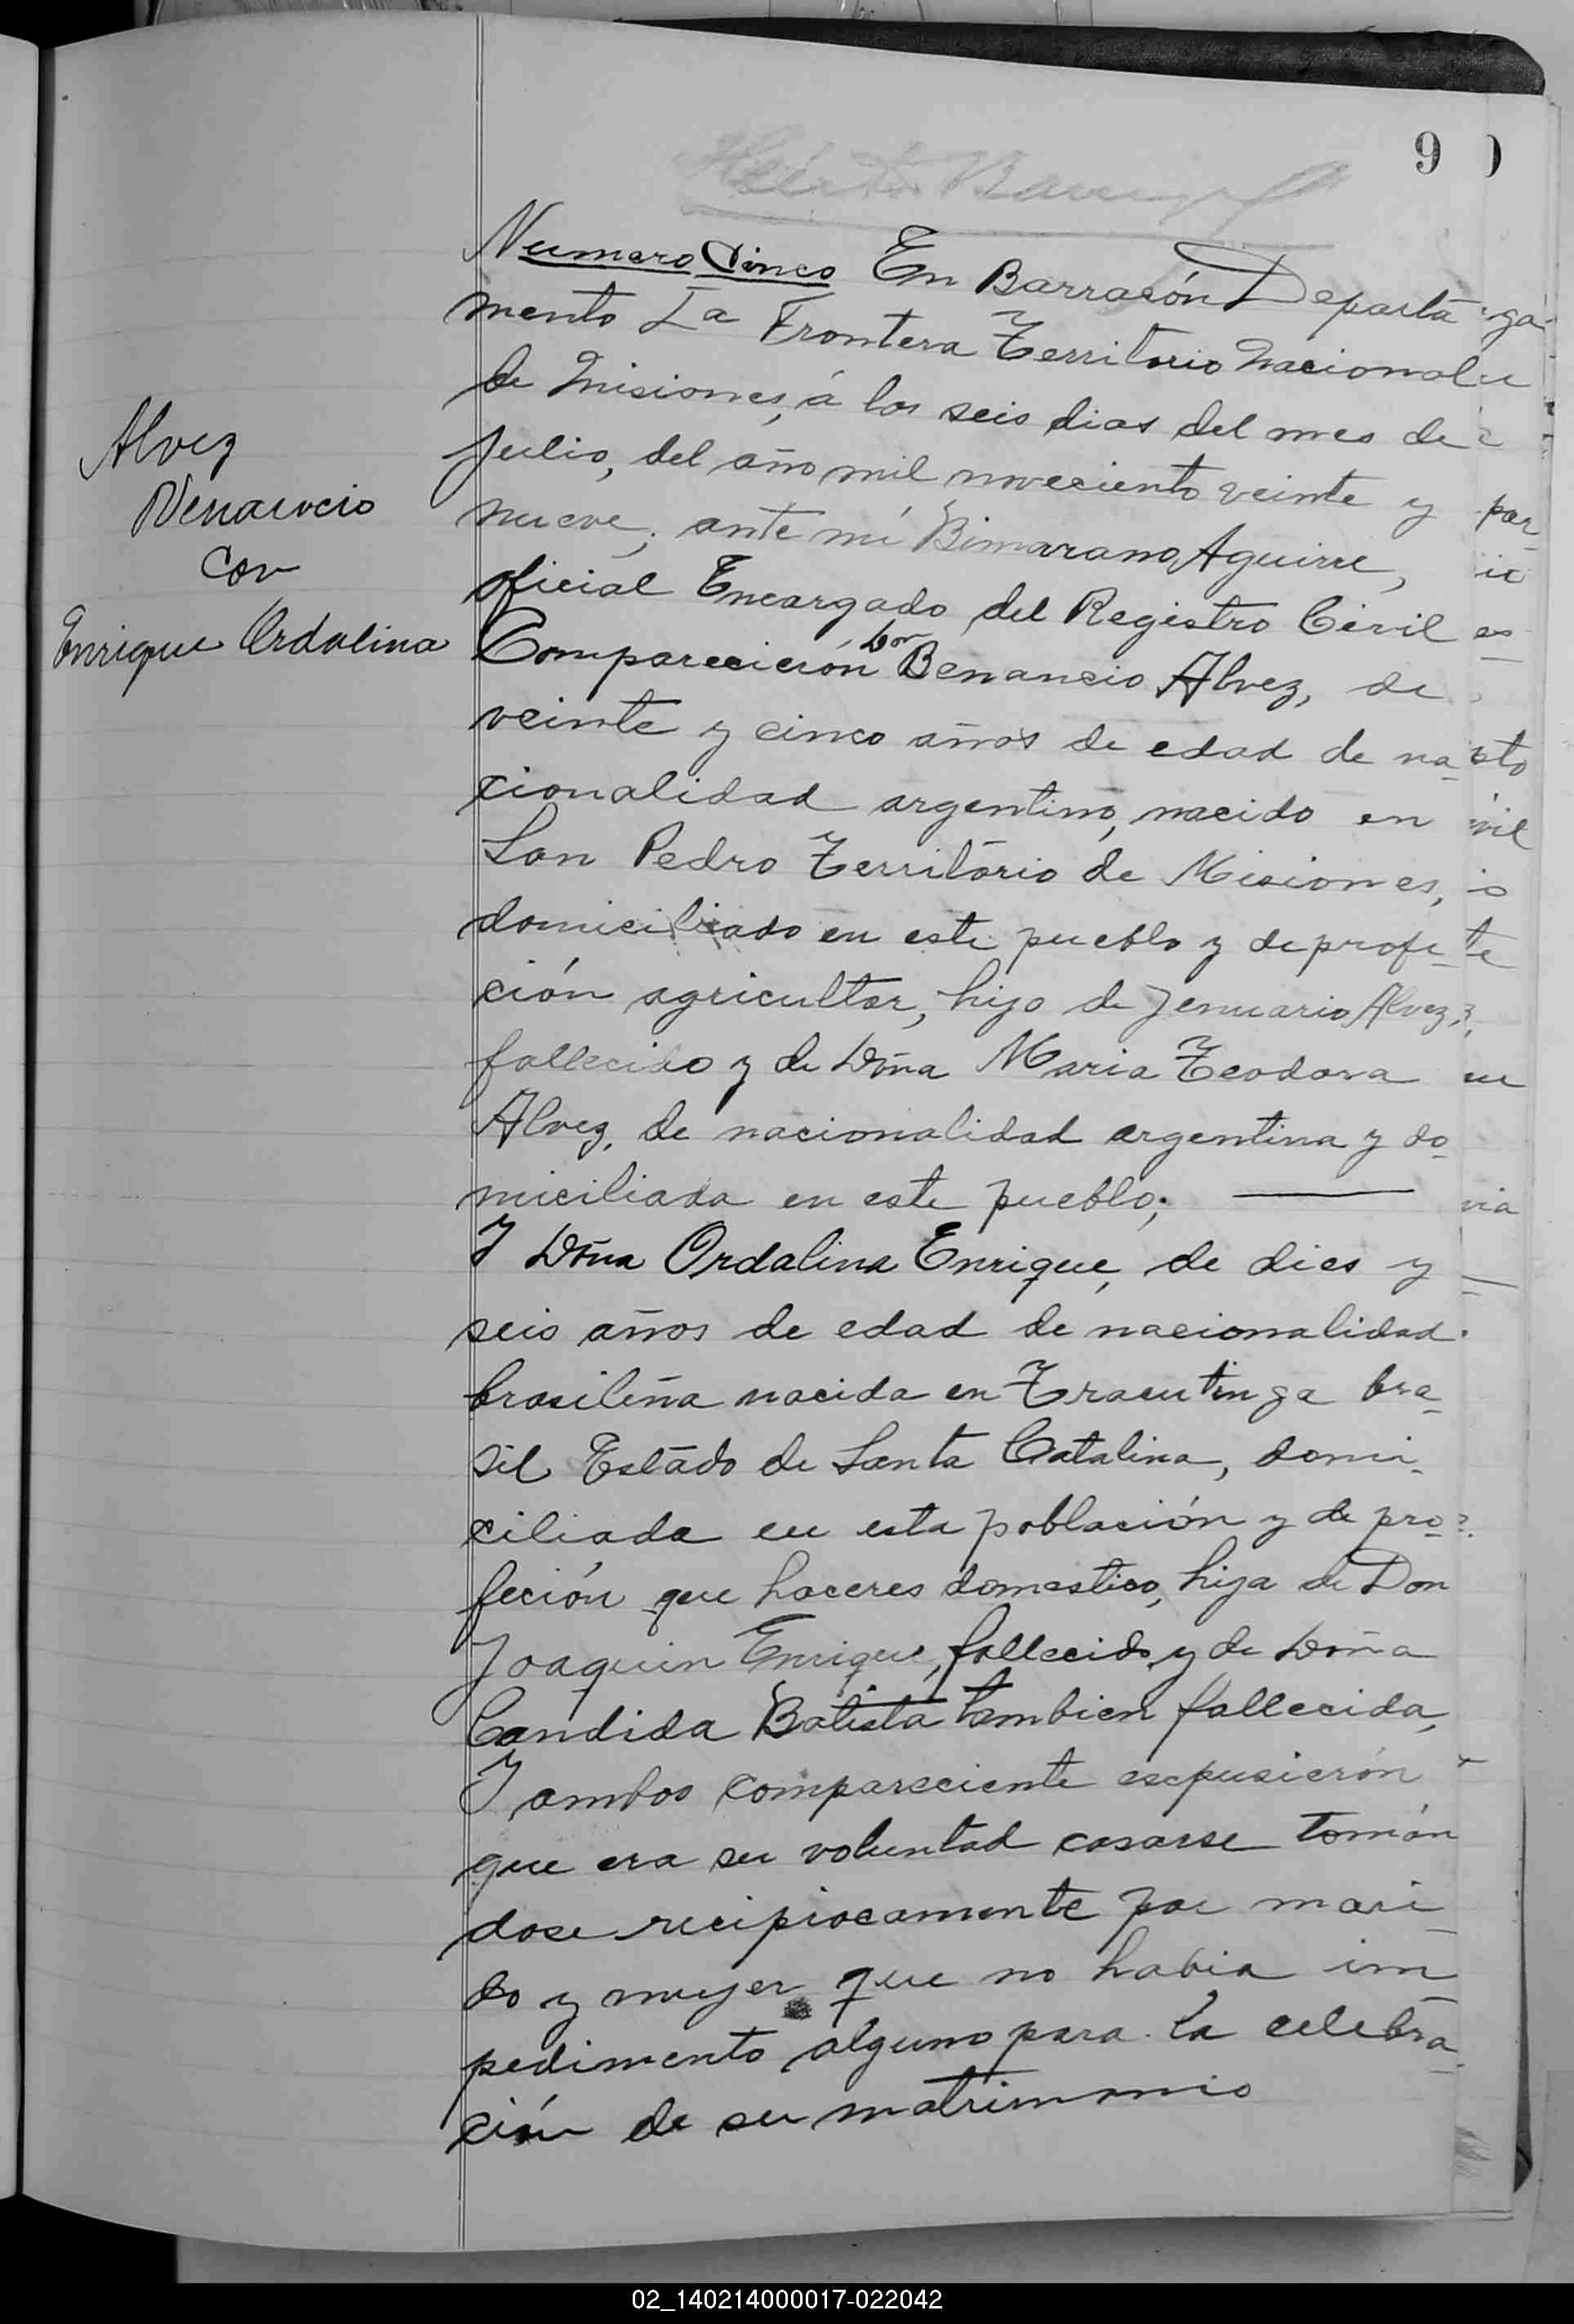 9
Numero Cinco En Barracón Departa
mento La Frontera Territorio Nacional
de Misiones, á los seis dias del mes de
Julio, del año mil noveciento veinte y
nueve; ante mi Bimarano Aguirre,
oficial Encargado del Registro Cívil
Comparecierón Don Benancio Alvez, de
veinte y cinco años de edad de na-
cionalidad argentino, nacido en
San Pedro Território de Misiones,
domiciliado en este pueblo y de profe-
ción agricultor, hijo de Jenuario Alvez,
fallecido y de Doña Maria Teodora
Alvez, de nacionalidad argentina y do-
miciliada en este pueblo;
Y Doña Ordalina Enrique, de dies y
seis años de edad de nacionalidad
brasileña nacida en Tracutinga bra-
sil Estado de Santa Catalina, domi-
ciliada en esta población y de pro-
feción que haceres domestico, hija de Don
Joaquin Enrique, fallecido, y de Doña
Candida Batista tambien fallecida,
Y ambos compareciente escpusierón
que era su voluntad casarse tomán
dose recipiocamente por mari-
do y mujer que no habia im
pedimento alguno para la celebra-
ción de su matrimonio
Alvez
Venancio
Con
Enrique Ordalina
02_140214000017-022042